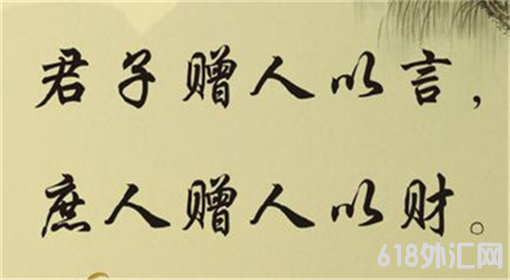 君子赠人以言，
庶人赠人以财。
618外汇网